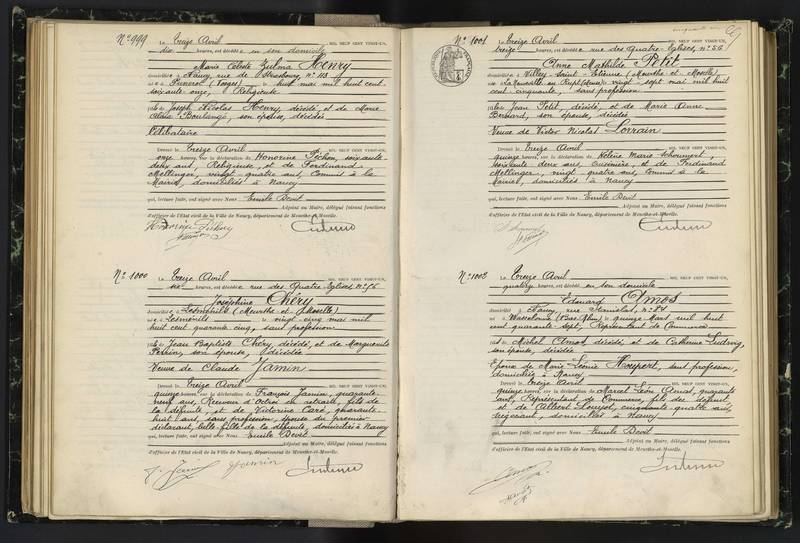 N° 999
Le Treize Avril MIL NEUF CENT VINGT-UN,
dix heures, est décédée en son domicile
Marie Céleste Zulma Henry
domiciliée à Nancy, rue de Strasbourg, n° 113
née à (Vosges) le huit mai mil huit cent
soixante onze, Religieuse
fille de Joseph Nicolas Henry, décédé, et de Marie
Boulangé, son épouse, décédée
Célibataire
Dressé le Treize Avril MIL NEUF CENT VINGT-UN,
onze heures, sur la déclaration de Honorine Pichon, soixante
deux ans, Religieuse, et de Ferdinand
Mellinger, vingt-quatre ans, Commis à la
Mairie, domiciliés à Nancy
qui, lecture faite, ont signé avec Nous Emile Devit
Adjoint au Maire, délégué faisant fonctions
d'officier de l'État civil de la Ville de Nancy, département de Meurthe-et-Moselle.
N° 1000
Le Treize Avril MIL NEUF CENT VINGT-UN,
heures, est décédée rue des Quatre-Eglises, n°
Joséphine Chéry
domiciliée à Lesménils (Meurthe et Moselle)
née à Lesménils le vingt cinq mai mil
huit cent quarante cinq, sans profession
fille de Jean Baptiste Chéry, décédé, et de Marguerite
son épouse, décédée
Veuve de Claude Jamin
Dressé le Treize Avril MIL NEUF CENT VINGT-UN,
quinze heures, sur la déclaration de François Jamin, quarante-
neuf ans, Receveur d'octroi en retraite, fils de
la défunte, et de Victorine Caré, quarante-
huit ans, sans profession, épouse du premier
déclarant, belle-fille de la défunte, domiciliés à Nancy
qui, lecture faite, ont signé avec Nous Emile Devit
Adjoint au Maire, délégué faisant fonctions
d'officier de l'État civil de la Ville de Nancy, département de Meurthe-et-Moselle.
Jamin
N° 1001
Le Treize Avril MIL NEUF CENT VINGT-UN,
treize heures, est décédée rue des Quatre-Eglises, n° 56
Anne Mathilde Petit
domiciliée à Villey-Saint-Etienne (Meurthe et Moselle),
née à le vingt-sept mai mil huit
cent cinquante, sans profession
fille de Jean Petit, décédé, et de Marie Anne
Bernard, son épouse, décédée
Veuve de Victor Nicolas Lorrain
Dressé le Treize Avril MIL NEUF CENT VINGT-UN,
quinze heures, sur la déclaration de Hélène Marie
soixante deux ans, Cuisinière, et de Ferdinand
Mellinger, vingt-quatre ans, Commis à la
Mairie, domiciliés à Nancy
qui, lecture faite, ont signé avec Nous Emile Devit
Adjoint au Maire, délégué faisant fonctions
d'officier de l'État civil de la Ville de Nancy, département de Meurthe-et-Moselle.
Le Treize Avril MIL NEUF CENT VINGT-UN,
heures, est décédé en son domicile
Edouard Amos
domicilié à Nancy, rue Stanislas, n° 84
né à Wasselonne (Bas-Rhin) le quinze Mars mil huit
cent quarante-sept, Représentant de Commerce
fils de Michel Amos, décédé, et de Catherine Ludwig,
son épouse, décédée
Epoux de Marie Léonie Houpert, sans profession,
domiciliée à Nancy
Dressé le Treize Avril MIL NEUF CENT VINGT-UN,
quinze heures, sur la déclaration de Marcel Léon Amos, quarante
ans, Représentant de Commerce, fils du défunt
et de Albert cinquante quatre ans,
Négociant, domiciliés à Nancy
qui, lecture faite, ont signé avec Nous Emile Devit
Adjoint au Maire, délégué faisant fonctions
d'officier de l'État civil de la Ville de Nancy, département de Meurthe-et-Moselle.